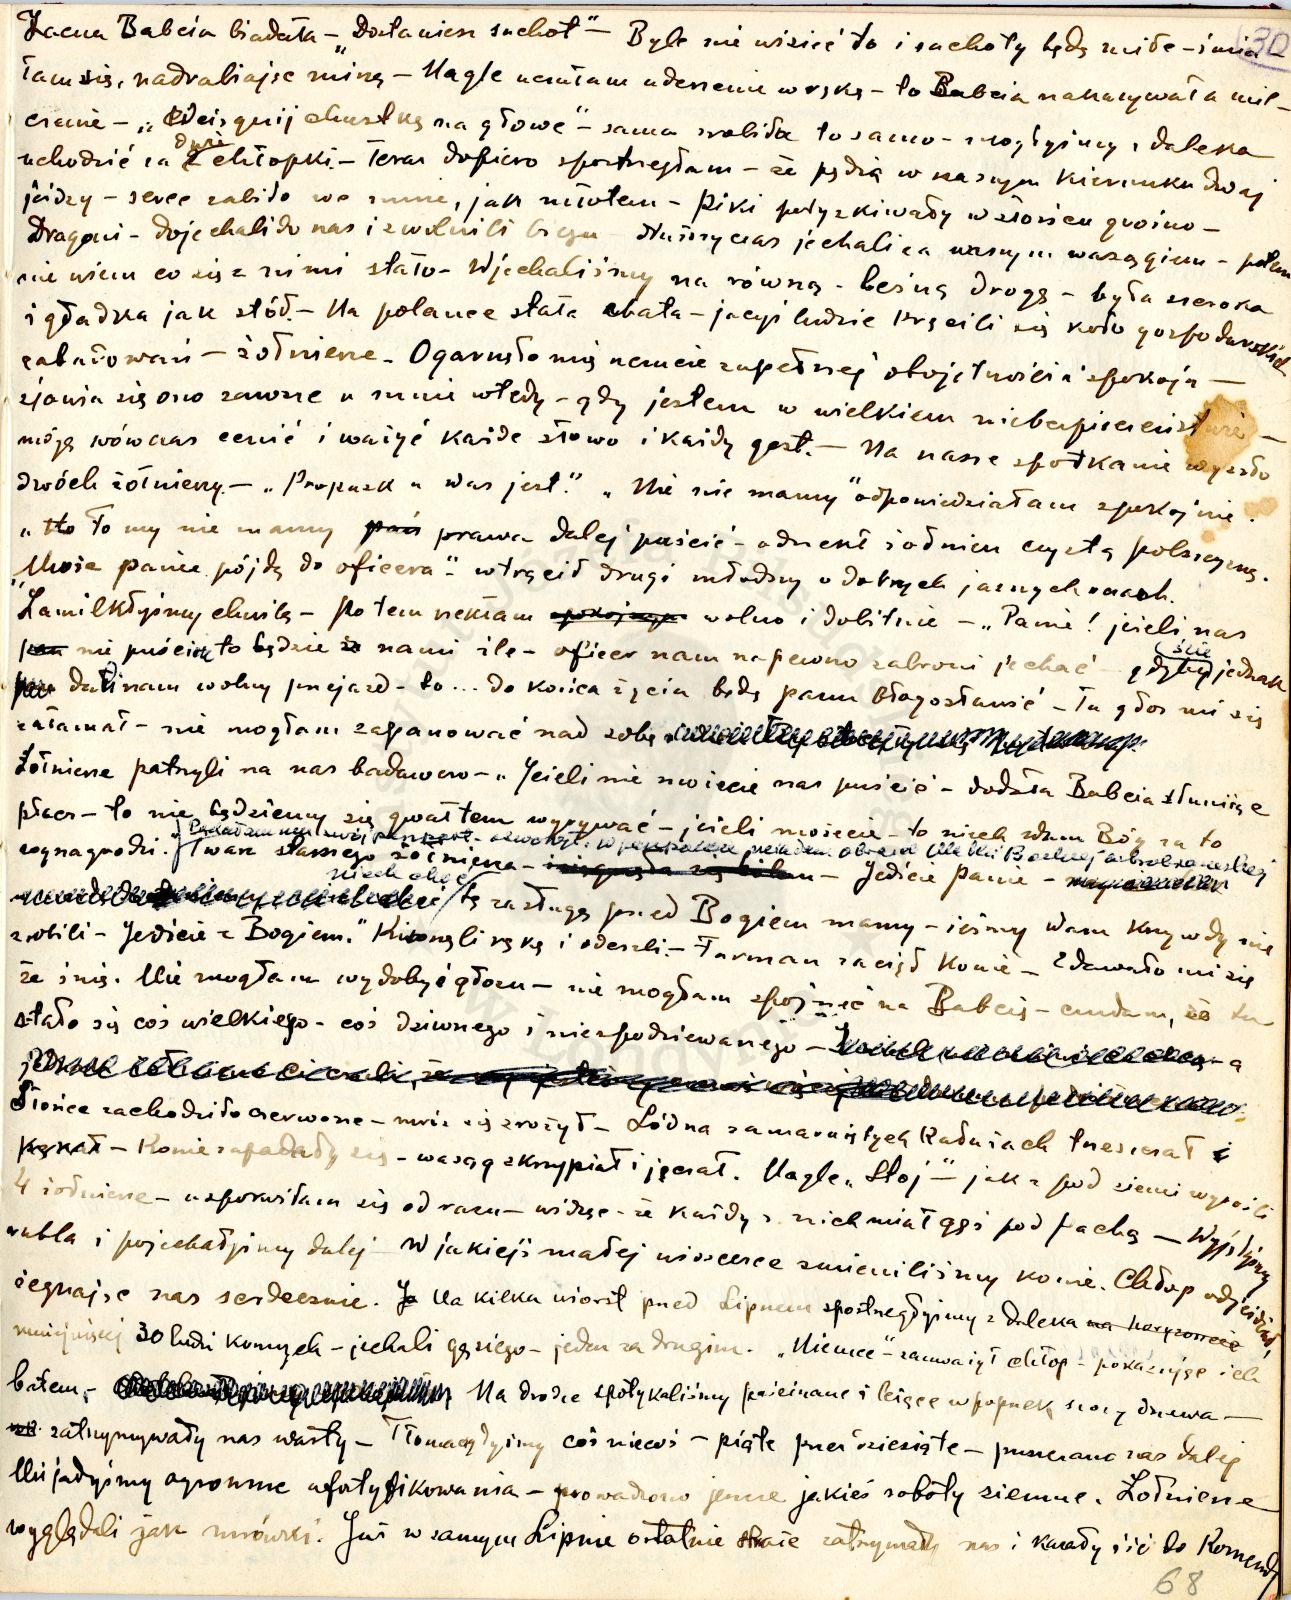 30
Zacna Babcia biadała – „Dostaniesz suchot" – Byle nie wisieć to i suchoty będą miłe – śmia-
łam się, nadrabiając miną – Nagle uczułam uderzenie w rękę – to Babcia nakazywała mil-
czenie – „Wciągnij chustkę na głowę" – sama zrobiła to samo – mogłyśmy z daleka
uchodzić za dwie chłopki – Teraz dopiero spostrzegłam – że pędzą w naszym kierunku dwaj
jeźdzy – serce zabiło we mnie, jak młotem – Piki połyskiwały w słońcu groźno –
Dragoni – dojechali do nas i zwolnili biegu – dłuższy czas jechali za naszym wasągiem – potem
nie wiem co się z nimi stało – Wjechaliśmy na równą – leśną drogę – była szeroka
i gładka jak stół. – Na polance stała chata – jacyś ludzie kręcili się koło gospodarskich
zabudowań – żołnierze – Ogarnęło mię uczucie zupełnej obojętności i spokoju –
zjawia się ono zawsze u mnie wtedy – gdy jestem w wielkiem niebezpieczeństwie –
mogę wówczas cenić i ważyć każde słowo i każdy gest. – Na nasze spotkanie wyszło
dwóch żołnierzy – „Propusk u was jest." „Nie nie mamy" odpowiedziałam spokojnie.
„No to my nie mamy prawa dalej puścić – odrzekł żołnierz czystą polszczyzną.
„Moje panie pójdą do oficera" – wtrącił drugi młodszy o dobrych jasnych oczach.
Zamilkłyśmy chwilę – potem rzekłam spokojnym wolno i dobitnie – „Panie! jeżeli nas
pan nie puścicie to będzie z nami źle – oficer nam napewno zabroni jechać – gdybyście jednak
pan dali nam wolny przejazd – to... do końca życia będę panu błogosławić – Tu głos mi się
załamał – nie mogłam zapanować nad sobą
Żołnierze patrzyli na nas badawczo – „Jeżeli nie możecie nas puścić – dodała Babcia tłumiąc
płacz – to nie będziemy się gwałtem wyrywać – jeżeli możecie – to niech Wam Bóg za to
wynagrodzi.
Twarz starszego żołnierza – – Jedźcie Panie –
niech choć tę zasługę przed Bogiem mamy – iśmy Wam krzywdy nie
zrobili – Jedźcie z Bogiem." Kiwnęli ręką i odeszli. – Furman zaciął konie – Zdawało mi się
że śnię. Nie mogłam wydobyć głosu – nie mogłam spojrzeć na Babcię – czułam, że tu
stało się coś wielkiego – coś dziwnego i niespodziewanego – a
Słońce zachodziło czerwone – mróz się srożył – Lód na zamarzniętych kałużach trzeszczał i
pękał – Konie zapadały się – wasąg skrzypiał i jęczał. Nagle „Stój" – jak z pod ziemi wyrośli
4 żołnierze – uspokoiłam się od razu – widzę – że każdy z nich miał gęś pod pachą – Wyjęłyśmy
rubla i pojechałyśmy dalej – W jakiejś małej wioseczce zmieniliśmy konie. Chłop odjeżdżał
żegnając nas serdecznie. Na kilka wiorst przed Lipnem spostrzegłyśmy z daleka na horyzoncie
mniejwięcej 30 ludzi konnych – jechali gęsiego – jeden za drugim. „Niemce" – zauważył chłop – pokazując ich
batem. – Na drodze spotykaliśmy pościnane i leżące w poprzek szosy drzewa –
zatrzymywały nas warty – Tłomaczyłyśmy coś niecoś – piąte przez dziesiąte – puszczano nas dalej
Mijałyśmy ogromne ufortyfikowania – prowadzono jeszcze jakieś roboty ziemne. Żołnierze
wyglądali jak mrówki. Już w samym Lipnie ostatnie straże zatrzymały nas i kazały iść do Komendy
68